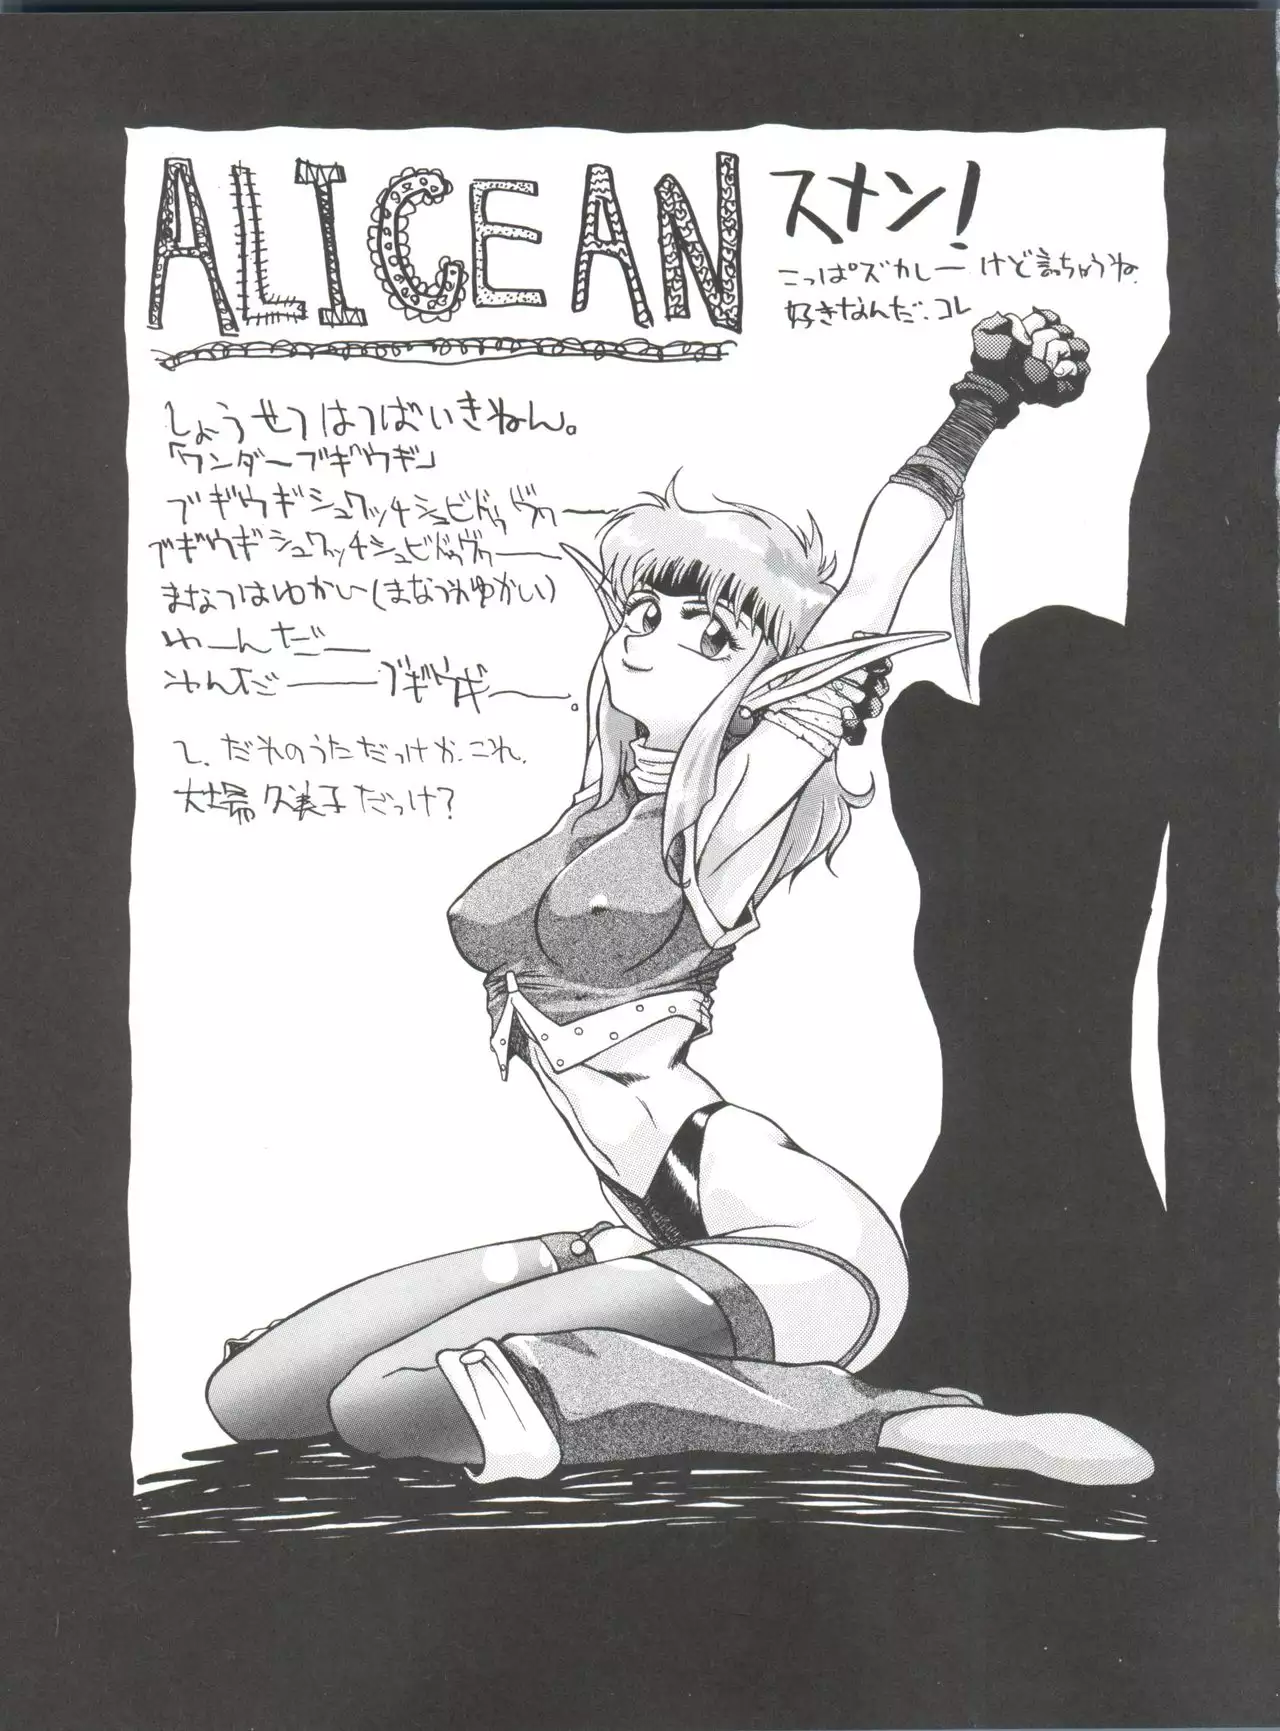 ALICEAN
スメン!
こっぱズカしー けど言っちゃうね.
好きなんだ.コレ
しょうせつはつばいきねん。
「ワンダーブギウギ」
ブギウギシュワッチシュビドゥヴァー
ブギウギシュワッチシュビドゥヴァー
まなつはゆかい(まなつわゆかい)
わーんだー
わんだーーーブギウギー。
て、だれのうただっけか.これ.
大場久美子だっけ?